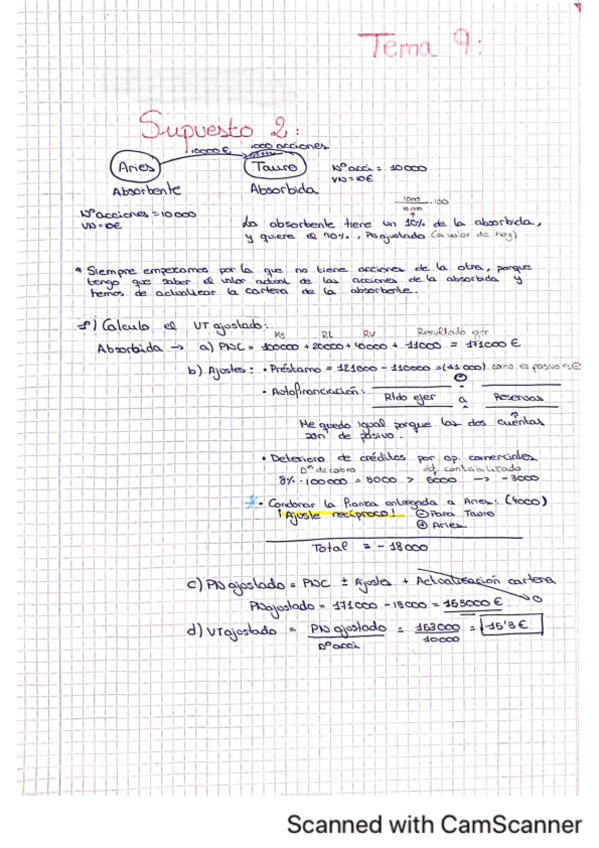 Tema 9:
Supuesto 2:
10000€ 1000 acciones
Aries Tauro Nº acci = 10000
VN = 10€
Absorbente Absorbida
Nº acciones = 10000
VN = 10€
1000
10000 · 100
La absorbente tiene un 10% de la absorbida,
y quiere el 90%, PN ajustado (a valor de hoy)
* Siempre empezamos por la que no tiene acciones de la otra, porque
tengo que saber el valor actual de las acciones de la absorbida y
hemos de actualizar la cartera de la absorbente.
1º) Calculo el VT ajustado:
KS RL RV Resultado ejer
Absorbida → a) PNC = 100000 + 20000 + 40000 + 11000 = 171000 €
b) Ajustes: • Préstamo = 121000 - 110000 = (11000) como es pasivo
• Autofinanciación: Rtdo ejer a Reservas
Me quedo igual porque las dos cuentas
son de pasivo.
• Deterioro de créditos por op. comerciales
Dº de cobro dd. contabilizado
8% · 100000 = 8000 > 5000 → -3000
* • Condonar la fianza entregada a Aries: (4000)
¡Ajuste recíproco! ⊖ Para Tauro
⊕ Aries
Total = -18000
c) PN ajustado = PNC ± Ajustes + Actualización cartera
0
PN ajustado = 171000 - 18000 = 153000 €
d) VT ajustado = PN ajustado / Nº acci = 153000 / 10000 = 15'3 €
Scanned with CamScanner